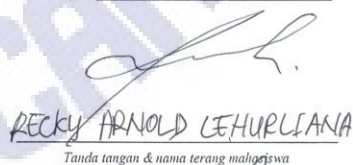 RECKY ARNOLD LEHURLIANA
Tanda tangan & nama terang mahasiswa